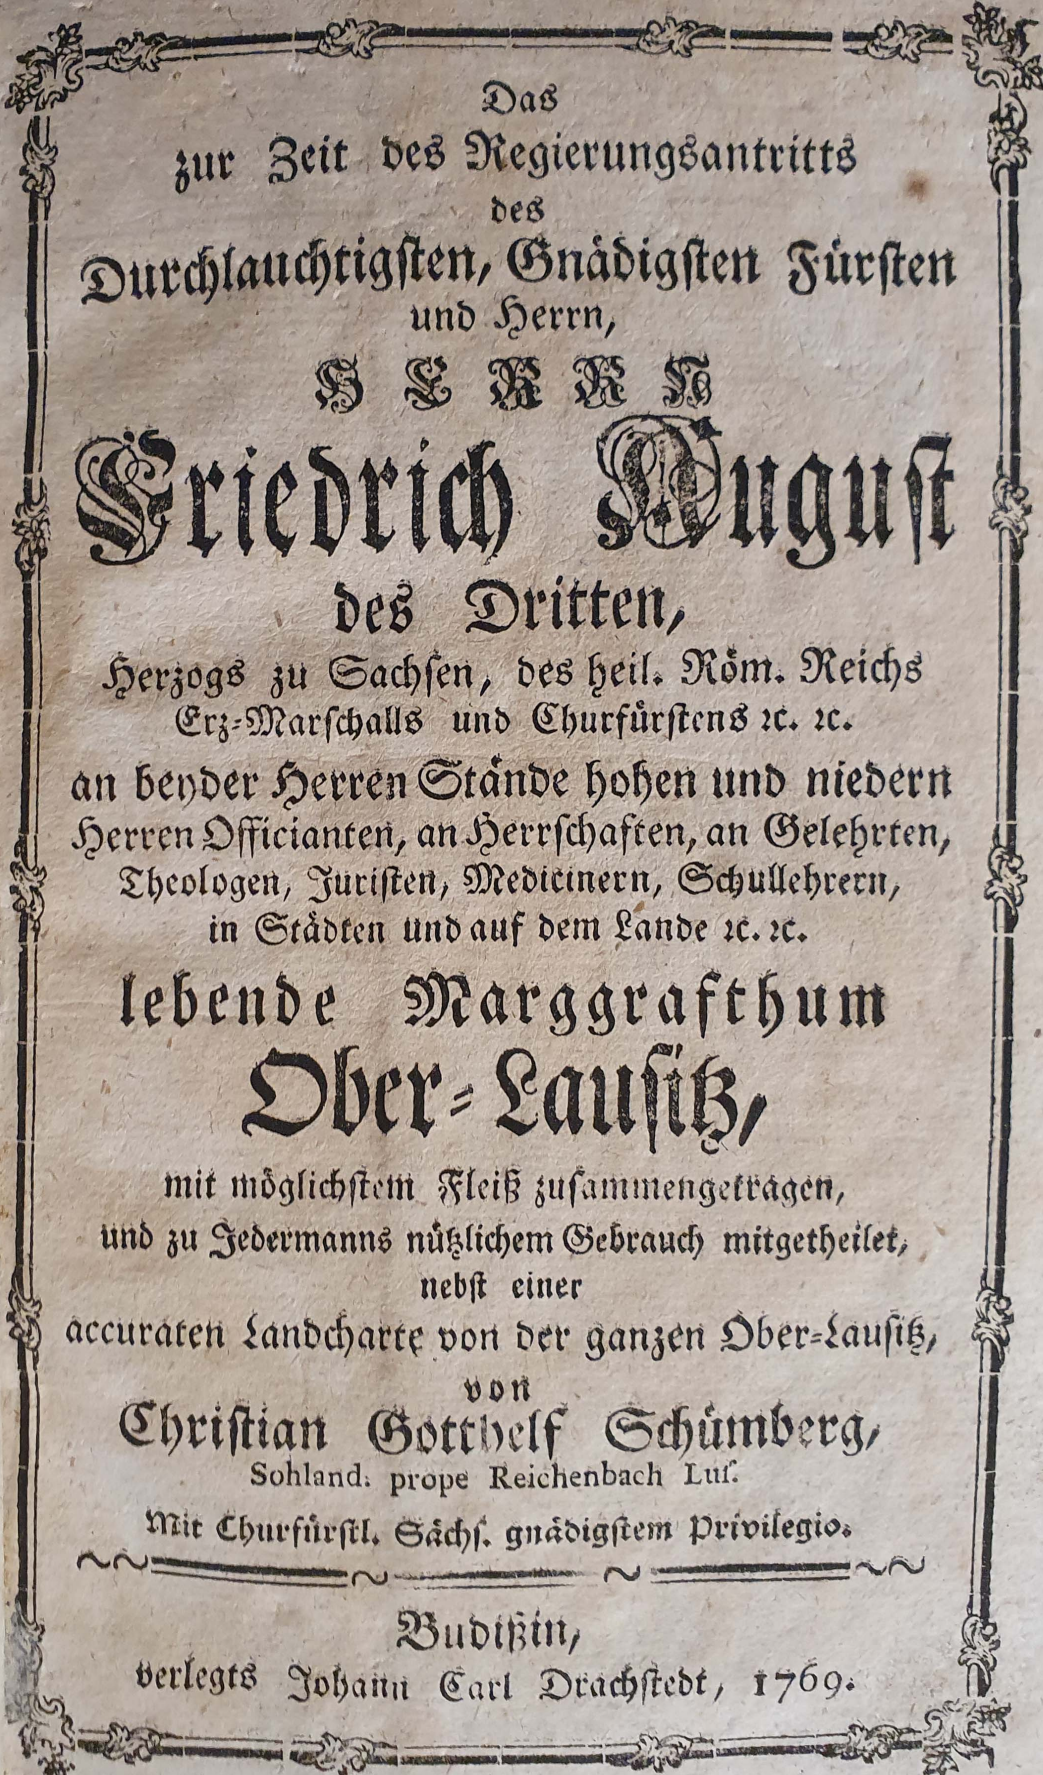 Das
zur Zeit des Regierungsantritts
des
Durchlauchtigsten, Gnädigsten Fürsten
und Herrn,
HERRN
Friedrich August
des Dritten,
Herzogs zu Sachsen, des heil. Röm. Reichs
Erz-Marschalls und Churfürstens ꝛc. ꝛc.
an beyder Herren Stände hohen und niedern
Herren Officianten, an Herrschaften, an Gelehrten,
Theologen, Juristen, Medicinern, Schullehrern,
in Städten und auf dem Lande ꝛc. ꝛc.
lebende Marggrafthum
Ober-Lausitz,
mit möglichstem Fleiß zusammengetragen,
und zu Jedermanns nützlichem Gebrauch mitgetheilet,
nebst einer
accuraten Landcharte von der ganzen Ober-Lausitz,
von
Christian Gotthelf Schümberg,
Sohland. prope Reichenbach Luſ.
Mit Churfürstl. Sächs. gnädigstem Privilegio.
Budißin,
verlegts Johann Carl Drachstedt, 1769.